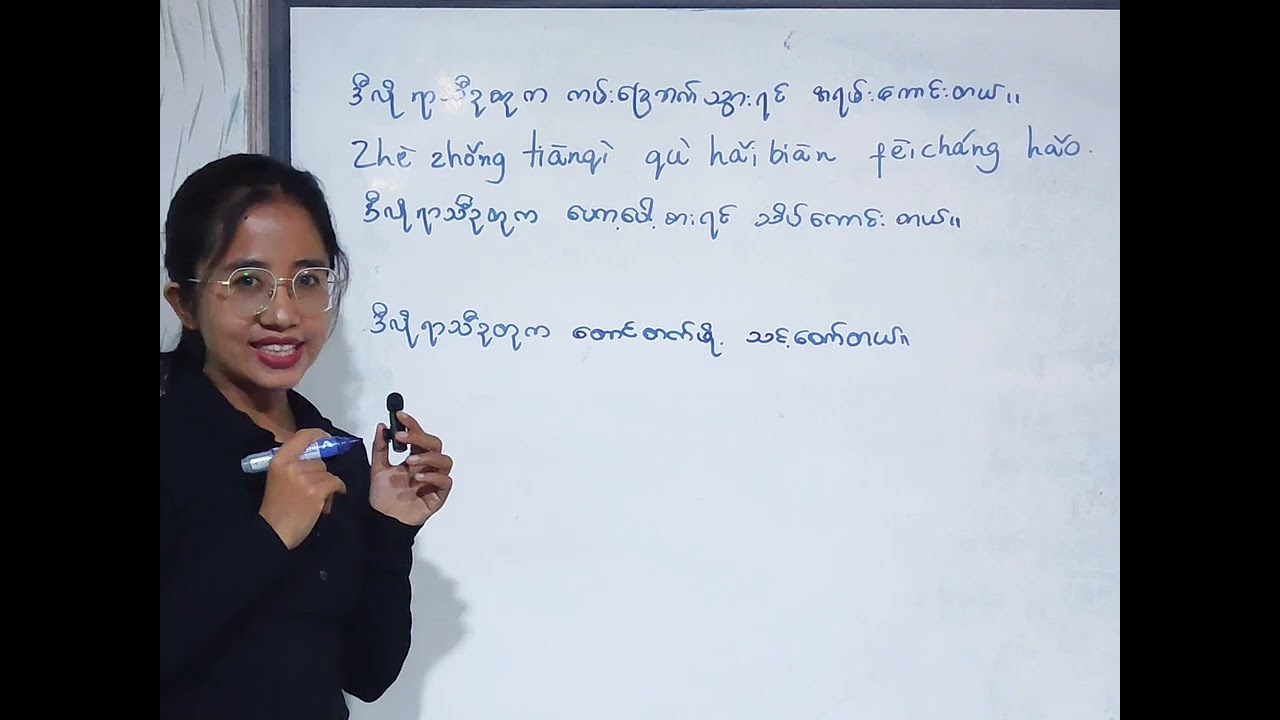 ဒီလို ရာသီဥတုက ကမ်းခြေဘက် သွားရင် အရမ်းကောင်းတယ်။
Zhè zhǒng tiānqì qù hǎi biān fēicháng hǎo.
ဒီလို ရာသီဥတုက ဟော့ပေါ့ စားရင် သိပ်ကောင်း တယ်။
ဒီလို ရာသီဥတုက တောင်တက်ဖို့ သင့်တော်တယ်။